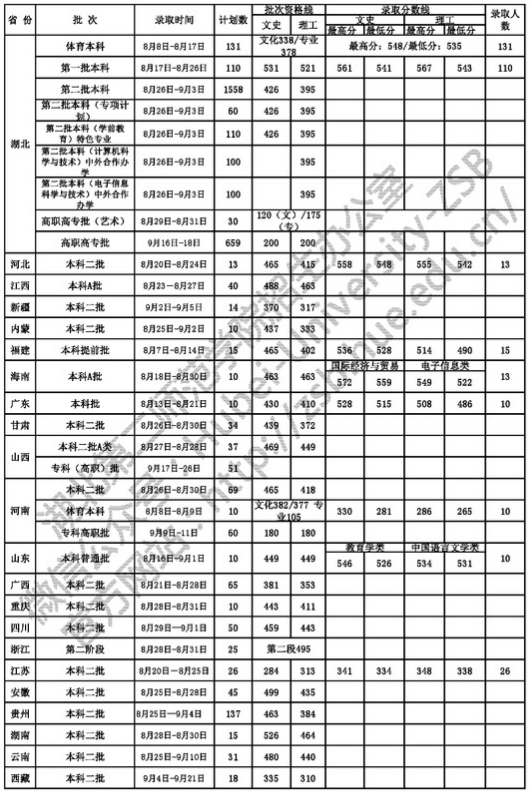 省 份 批 次 录取时间 计划数 批次资格线 录取分数线 录取人数
文史 理工 文史 理工
最高分 最低分 最高分 最低分
湖北 体育本科 8月8日-8月17日 131 文化338/专业378 最高分：548/最低分：535 131
第一批本科 8月17日-8月26日 110 531 521 561 541 567 543 110
第二批本科 8月26日-9月3日 1558 426 395
第二批本科（专项计划） 8月26日-9月3日 60 426 395
第二批本科（学前教育）特色专业 8月26日-9月3日 110 426 395
第二批本科（计算机科学与技术）中外合作办学 8月26日-9月3日 100 395
第二批本科（电子信息科学与技术）中外合作办学 8月26日-9月3日 100 395
高职高专批（艺术） 8月29日-8月31日 30 120（文）/175（专）
高职高专批 9月16日-18日 659 200 200
河北 本科二批 8月20日-8月24日 13 465 415 558 548 555 542 13
江西 本科A批 8月23—8月27日 40 488 463
新疆 本科二批 9月2日-9月5日 14 370 317
内蒙 本科二批 8月25日-9月2日 10 437 333
福建 本科提前批 8月7日-8月14日 15 465 402 536 528 514 490 15
海南 本科A批 8月18日-8月30日 10 463 463 国际经济与贸易 电子信息类 13
572 559 549 522
广东 本科批 8月13日-8月21日 10 430 410 528 515 508 486 10
甘肃 本科二批 8月26日-8月30日 34 439 372
山西 本科二批A类 8月27日-8月28日 37 469 449
专科（高职）批 9月17日-26日 51
河南 本科二批 8月26日-8月30日 69 465 418
体育本科 8月8日-8月9日 10 文化382/377 专业105 330 281 286 265 10
专科高职批 9月9日-11日 60 180 180
山东 本科普通批 8月16日-9月1日 10 449 449 教育学类 中国语言文学类 10
546 526 534 531
广西 本科二批 8月21日-8月28日 65 381 353
重庆 本科二批 8月28日-8月31日 10 443 411
四川 本科二批 8月29日—9月1日 50 459 443
浙江 第二阶段 8月28日-8月31日 25 第二段495
江苏 本科二批 8月20日—8月25日 26 284 313 341 334 348 338 26
安徽 本科二批 8月25日-8月28日 45 499 435
贵州 本科二批 8月25日—9月4日 137 463 384
湖南 本科二批 8月28日-8月30日 15 526 464
云南 本科二批 8月25日-9月10日 31 480 440
西藏 本科二批 9月4日-9月21日 18 335 310
湖北第二师范学院招生办公室
微信公众号：Hubei-University-ZSB
官方网站：http://zsb.hue.edu.cn/